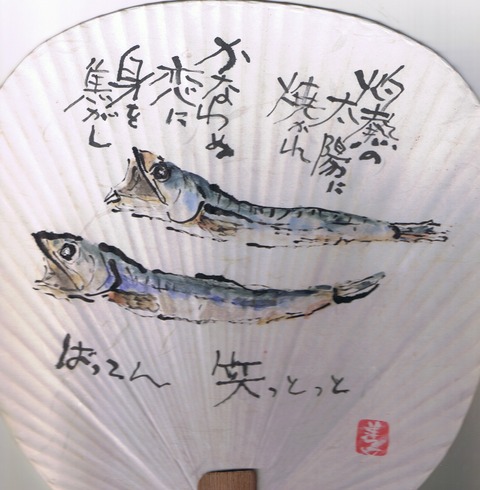 灼熱の
太陽に
焼かれ
かなわぬ
恋に
身を
焦がし
笑っとっと
ばってん